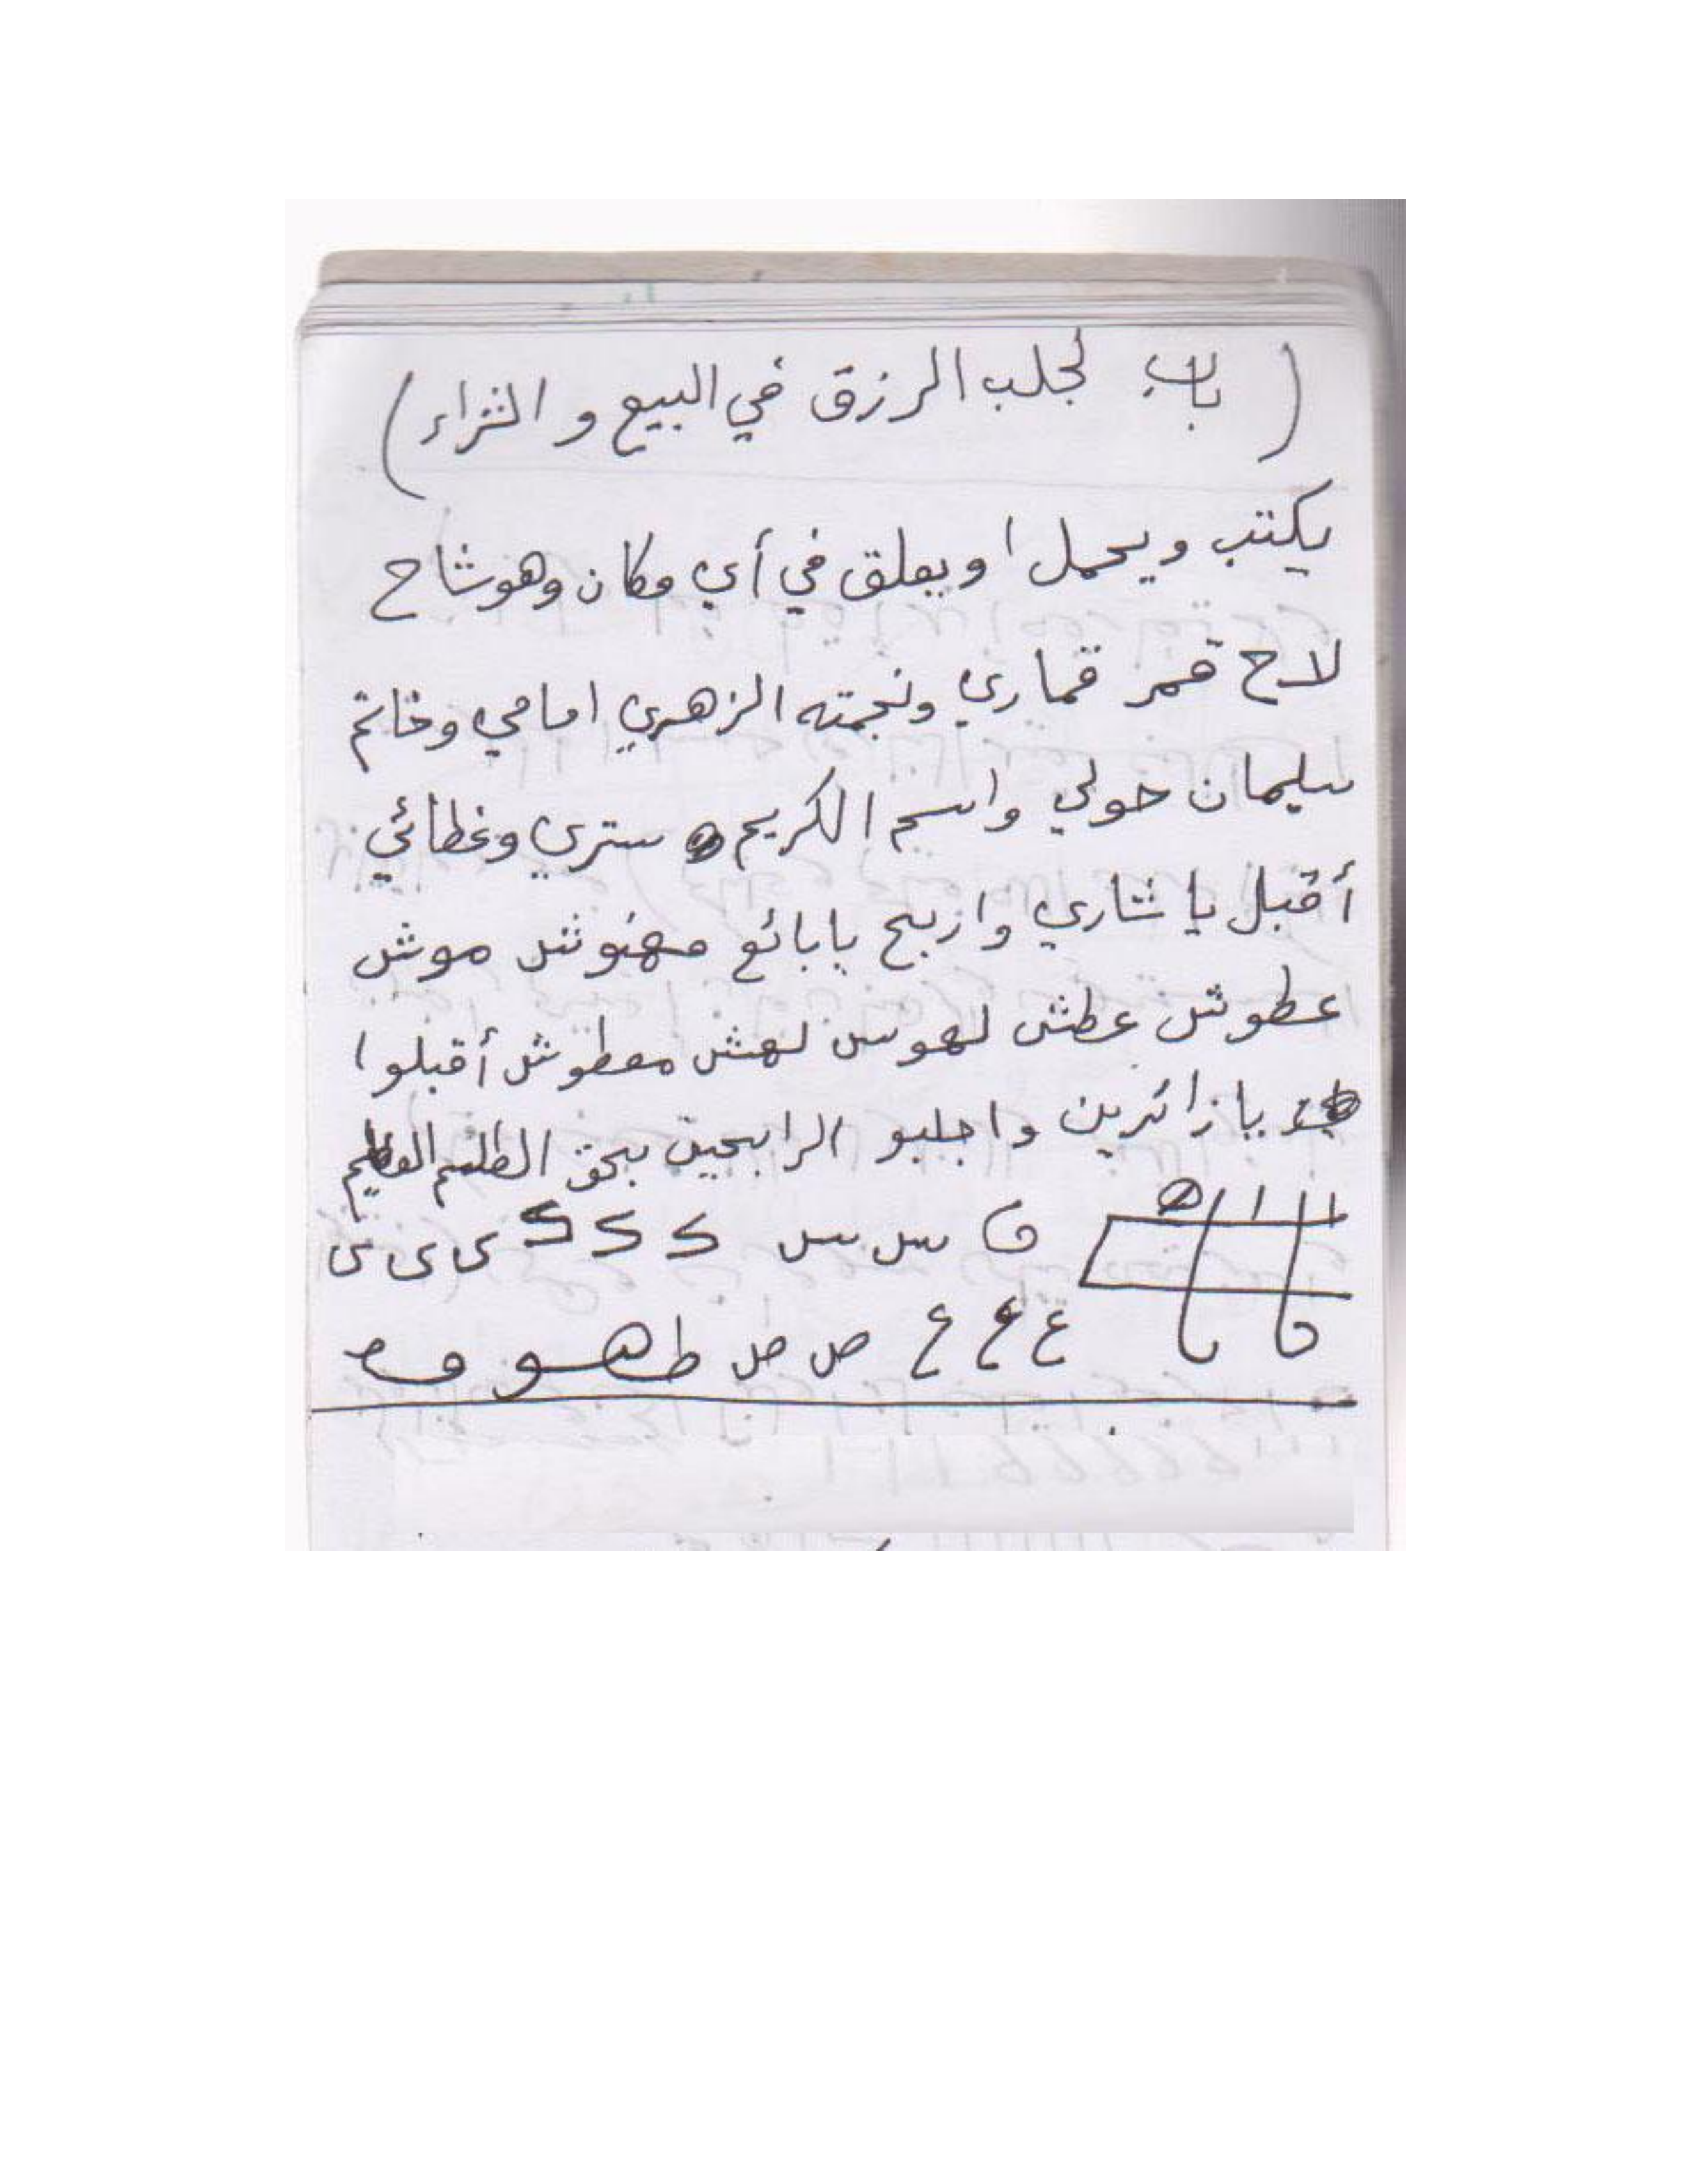 ( باب لجلب الرزق في البيع و الشراء )
يكتب ويحمل او يعلق في أي مكان وهو شاح
لاح قمر قماري ونجمته الزهري امامي وخاتم
سليمان حولي واسم الكريم ستري وغطائي
أقبل يا شاري واربح يا بائع مهنوش موش
عطوش عطش لهوس لهش معطوش أقبلوا
يا زائرين واجلبو الرابحين بحق الطلسم العظيم
س س ى ى ى
ع ع ع ص ص ط هو